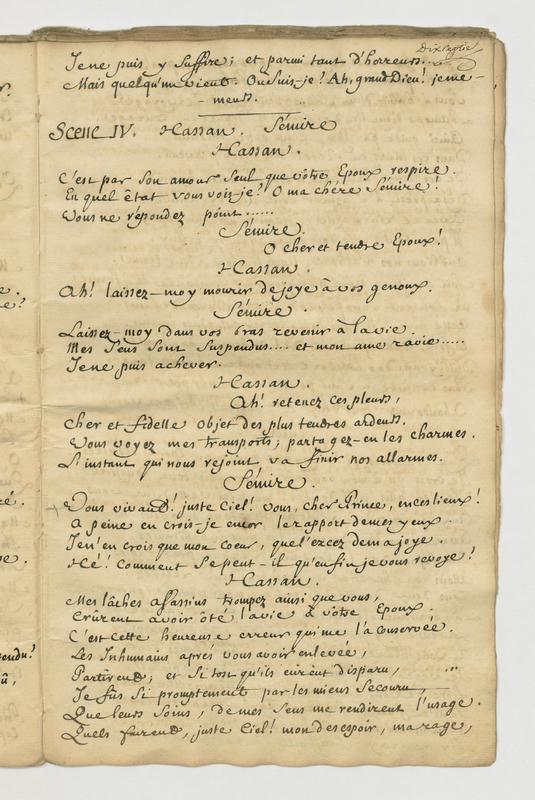 Je ne puis y suffire; et parmi tant d'horreurs..
Mais quelqu'un vient. Ou suis-je? Ah, grand Dieu! je me-
-meurs.
Scene IV. Hassan. Sémire
Hassan.
C'est par son amour seul que vôtre Epoux respire.
En quel êtat vous vois-je? O ma chére Sémire!
Vous ne répondez point......
Sémire.
O cher et tendre Epoux!
Hassan.
Ah! laissez-moy mourir de joye à vos genoux.
Sémire.
Laissez-moy dans vos bras revenir à la vie.
Mes sens sont suspendus.... et mon ame ravie.....
Je ne puis achever.
Hassan.
Ah! retenez ces pleurs,
Cher et fidelle objet des plus tendres ardeurs.
Vous voyez mes transports; partagez-en les charmes.
L'instant qui nous rejoint, va finir nos allarmes.
Sémire.
Vous vivant! juste Ciel! vous, cher Prince, en ces lieux!
A peine en crois-je encor le rapport de mes yeux.
Je n'en crois que mon Coeur, que l'excez de ma joye.
Hé! Comment se peut-il qu'enfin je vous revoye!
Hassan.
Mes lâches assassins trompez ainsi que vous,
Crûrent avoir ôté la vie à vôtre Epoux.
C'est cette heureuse erreur qui me l'a conservée.
Les Inhumains aprés vous avoir enlevée,
Partirent; et si tost qu'ils eurent disparu,
Je fûs si promptement par les miens secouru,
Que leurs soins, de mes sens me rendirent l'usage.
Quels furent, juste Ciel! mon desespoir, ma rage,
é.
tendu!
û,